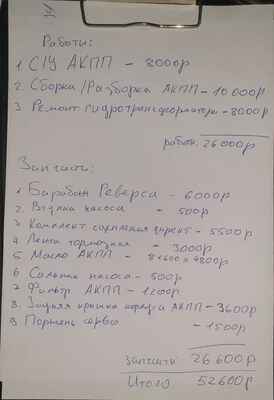 Работы:
1 С/У АКПП - 8000р
2. Сборка/Разборка АКПП - 10 000р
3 Ремонт гидротрансформатора - 8000р
работы: 26 000р
Запчасти:
1 Барабан Реверса - 6000р
2. Втулка насоса - 500р
3. Комплект сальников - 5500р
4 Лента тормозная - 3000р
5 Масло АКПП - 4800р
6 Сальник насоса - 800р
7 Фильтр АКПП - 1200р
8. Задняя крышка корпуса АКПП - 3600р
9. Поршень серво - 1500р
запчасти 26 600р
Итого 52 600р